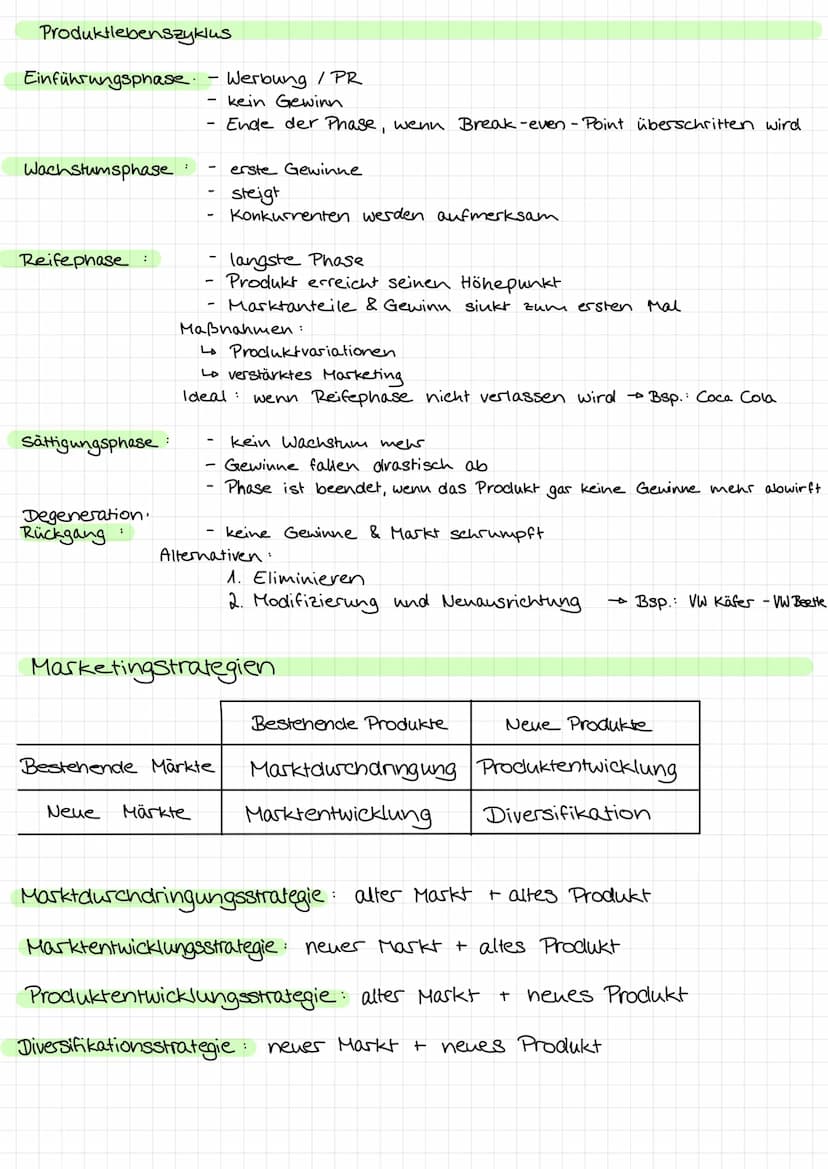 Produktlebenszyklus
Einführungsphase: - Werbung / PR
- kein Gewinn
- Ende der Phase, wenn Break-even-Point überschritten wird
Wachstumsphase: - erste Gewinne
- steigt
- Konkurrenten werden aufmerksam
Reifephase: - längste Phase
- Produkt erreicht seinen Höhepunkt
- Marktanteile & Gewinn sinkt zum ersten Mal
Maßnahmen:
↳ Produktvariationen
↳ verstärktes Marketing
Ideal: wenn Reifephase nicht verlassen wird → Bsp.: Coca Cola
Sättigungsphase: - kein Wachstum mehr
- Gewinne fallen drastisch ab
- Phase ist beendet, wenn das Produkt gar keine Gewinne mehr abwirft
Degeneration.
Rückgang: - keine Gewinne & Markt schrumpft
Alternativen:
1. Eliminieren
2. Modifizierung und Neuausrichtung → Bsp.: VW Käfer - VW Beetle
Marketingstrategien
Bestehende Produkte Neue Produkte
Bestehende Märkte Marktdurchdringung Produktentwicklung
Neue Märkte Marktentwicklung Diversifikation
Marktdurchdringungsstrategie: alter Markt + altes Produkt
Marktentwicklungsstrategie: neuer Markt + altes Produkt
Produktentwicklungsstrategie: alter Markt + neues Produkt
Diversifikationsstrategie: neuer Markt + neues Produkt